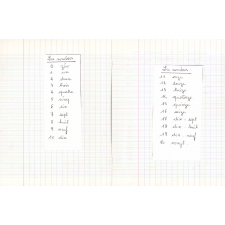 Les nombres
0 zéro
1 un
2 deux
3 trois
4 quatre
5 cinq
6 six
7 sept
8 huit
9 neuf
10 dix
Les nombres
11 onze
12 douze
13 treize
14 quatorze
15 quinze
16 seize
17 dix - sept
18 dix - huit
19 dix - neuf
20 vingt